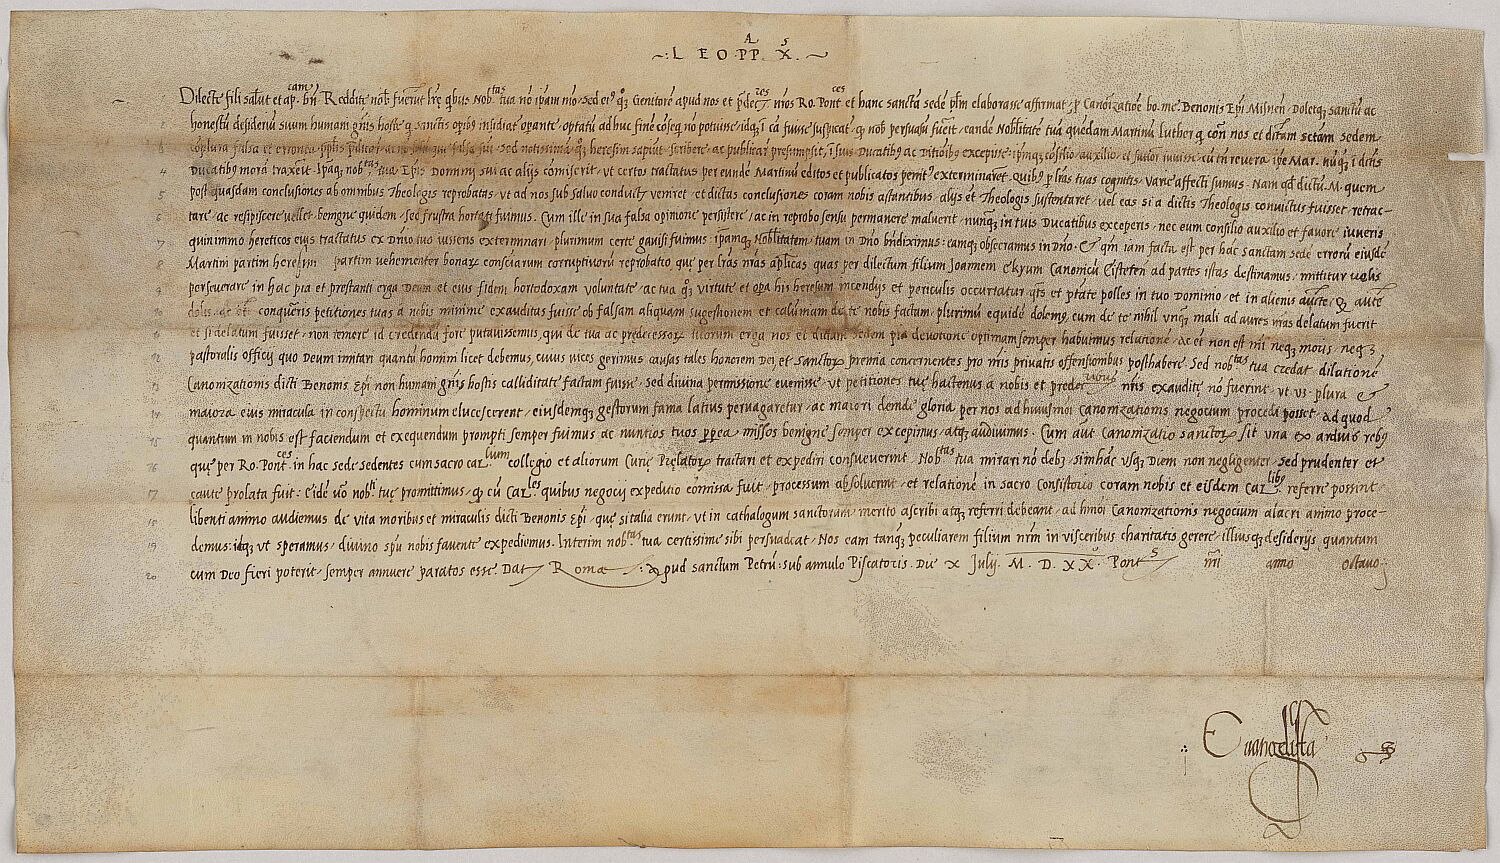 ~: L E O · PP A · X S · ~
Dilecte fili salut et ap.cam bn. Reddite nob fuerut lre qbus Nobtas tua no ipam mo sed et qz Genitore apud nos et pdecres nros Ro. Pontces et hanc sancta sede plm elaborasse affirmat p Canonizatioe bo. me. Benonis Epi Misnen. Doletqz sanctu ac
2 honestu desideriu suum humani gnis hoste q sanctis opibus insidiat opante optatu adhuc fine coseq no potuisse idqz i ca fuisse suspicat q nob persuasu fuerit eande Nobilitate tua quendam Martinu Luther q con nos et dictam sctam sedem
complura falsa et erronea sed notissima heresim sapiut scribere ac publicare presumpsit, i suis Ducatibus ac Ditioibus excepisse ipmqz cosilio auxilio et favore iuvisse cu tn revera ipe Mar. nuqz i dictis
4 Ducatibus mora traxerit Ipaqz nobtas tua Epis Dominij sui ac alijs comiserit ut certos tractatus per eunde Martinu editos et publicatos penit exterminaret. Quibus p lras tuas cognitis Varie affecti sumus. Nam qd dictu M. quem
5 post quasdam conclusiones ab omnibus Theologis reprobatas ut ad nos sub salvo conductu veniret et dictas conclusiones coram nobis astantibus alijs et Theologis sustentaret vel eas si a dictis Theologis convictus fuisset retrac-
6 tare ac resipiscere vellet benigne quidem sed frustra hortati fuimus. Cum ille in sua falsa opinione persistere ac in reprobo sensu permanere maluerit nunqz in tuis Ducatibus exceperis nec eum consilio auxilio et favore iuveris
7 quinimmo hereticos eius tractatus ex Dnio tuo iusseris exterminari plurimum certe gavisi fuimus ipamqz Nobilitatem tuam in Dno bndiximus eamqz obsecramus in Dno Et qm iam factu est per hac sanctam sede erroru eiusde
8 Martini partim heresim partim vehementer bonarz consciarum corruptivoru reprobatio que per lras nras aplicas quas per dilectum filium Joannem Ekium Canonicu Eisteten ad partes istas destinamus mittitur velis
9 perseverare in hac pia et prestanti erga Deum et eius fidem hortodoxam voluntate ac tua qz virtute et opa his heresum incendijs et periculis occurratur qts et ptate polles in tuo Dominio et in alienis aucte Qz aute
10 conquereris petitiones tuas a nobis minime exauditas fuisse ob falsam aliquam sugestionem et calumniam de te nobis factam plurimu equide dolemus cum de te nihil unqz mali ad aures nras delatum fuerit
et si delatum fuisset non temere id credendu fore putavissemus qui de tua ac predecessorz tuorum erga nos et dictam sedem pia devotione optimam semper habuimus relatione ac et non est nri neqz moris neqz
12 pastoralis officij quo Deum imitari quantu homini licet debemus cuius vices gerimus causas tales honorem Dei et Sanctorz premia concernentes pro nris privatis offensionibus posthabere. Sed nobtas tua credat dilatione
13 Canonizationis dicti Benonis Epi non humani gnis hostis calliditate factam fuisse sed divina permissione evenisse ut petitiones tue hactenus a nobis et predecessoribus nris exaudite no fuerint ut ubi plura et
14 maiora eius miracula in conspectu hominum elucescerent eiusdemqz gestorum fama latius pervagaretur ac maiori deinde gloria per nos ad huiusmoi Canonizationis negocium procedi posset ad quod
15 quantum in nobis est faciendum et exequendum prompti semper fuimus ac nuntios tuos pp ea missos benigne semper excepimus atqz audivimus. Cum aut Canonizatio sanctorz sit una ex arduis rebus
16 que per Ro. Pontces in hac sede sedentes cum sacro Car.lium collegio et aliorum Curie Prelatorz tractari et expediri consueverint Nobtas tua mirari no debz si in hac usqz Diem non negligenter sed prudenter et
17 caute prolata fuit. Eide vo nobti tue promittimus qz cu Car.les quibus negocij expeditio comissa fuit processum absolverint et relatione in sacro Consistorio coram nobis et eisdem Car.libus referre possint
18 libenti animo audiemus de vita moribus et miraculis dicti Benonis Epi que si talia erunt ut in cathalogum sanctorum merito ascribi atqz referri debeant ad hmoi Canonizationis negocium alacri animo proce-
19 demus idqz ut speramus divino spu nobis favente expediemus. Interim nobtas tua certissime sibi persuadeat Nos eam tanqz peculiarem filium nrm in visceribus charitatis gerere illiusqz desiderijs quantum
20 cum Deo fieri poterit semper annuere paratos esse. Dat Rome apud sanctum Petru sub annulo Piscatoris. Die X Julij M. D. XX. Pontus nri anno octavo
Evangelista